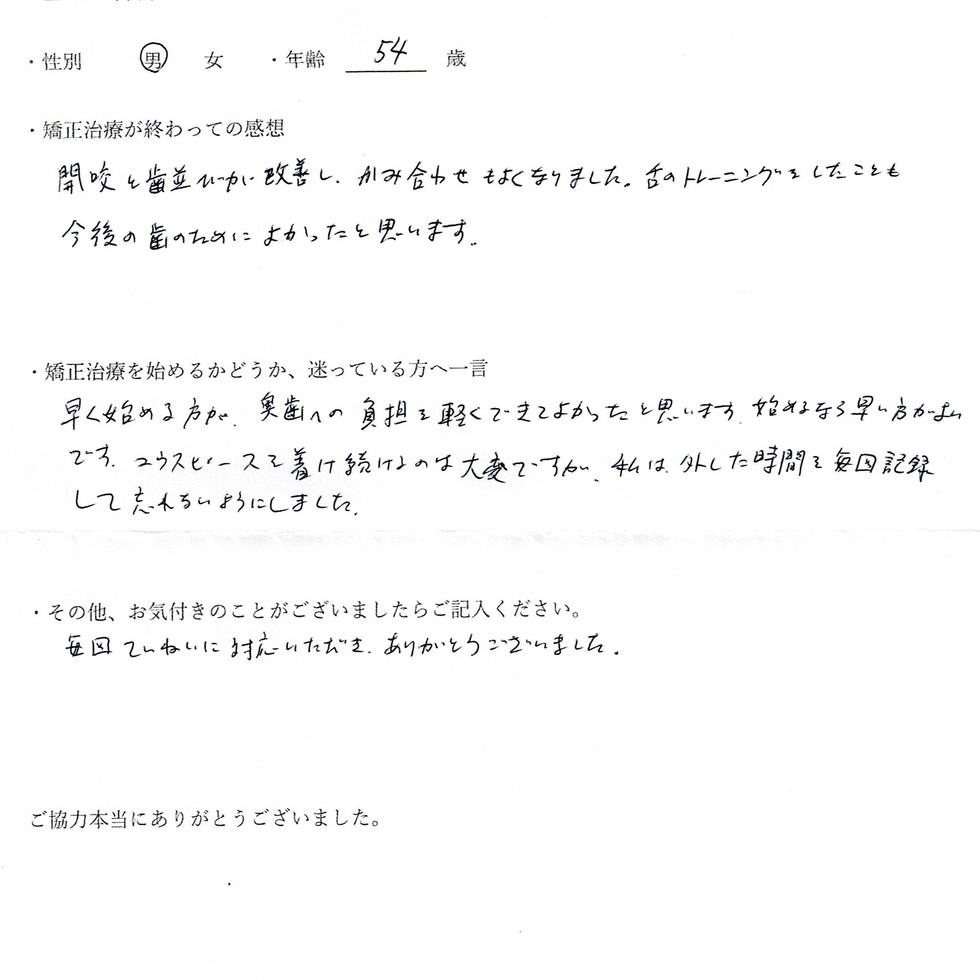 ・性別 男 女 ・年齢 54 歳
・矯正治療が終わっての感想
開咬と歯並びが改善し、かみ合わせもよくなりました。舌のトレーニングをしたことも
今後の歯のためによかったと思います。
・矯正治療を始めるかどうか、迷っている方へ一言
早く始める方が、奥歯への負担を軽くできてよかったと思います。始めるなら早い方がよい
です。マウスピースを着け続けるのは大変ですが、私は、外した時間を毎回記録
して忘れないようにしました。
・その他、お気付きのことがございましたらご記入ください。
毎回ていねいに対応いただき、ありがとうございました。
ご協力本当にありがとうございました。